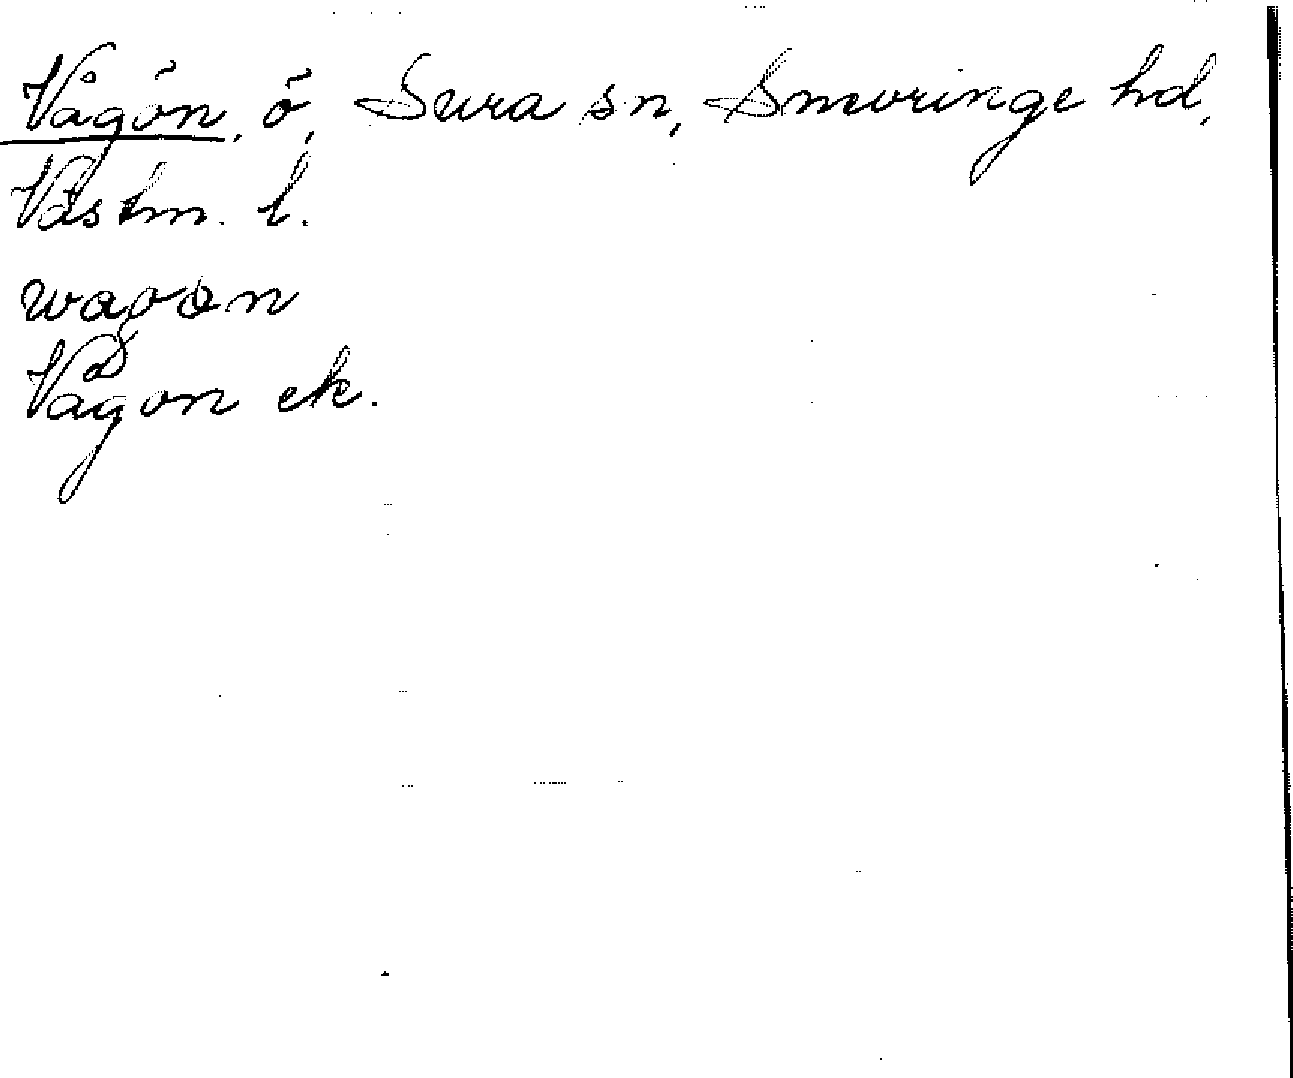 Vågön, ö, Sura sn, Snevringe hd,
Västm. l.
wagøn
Vågon ek.